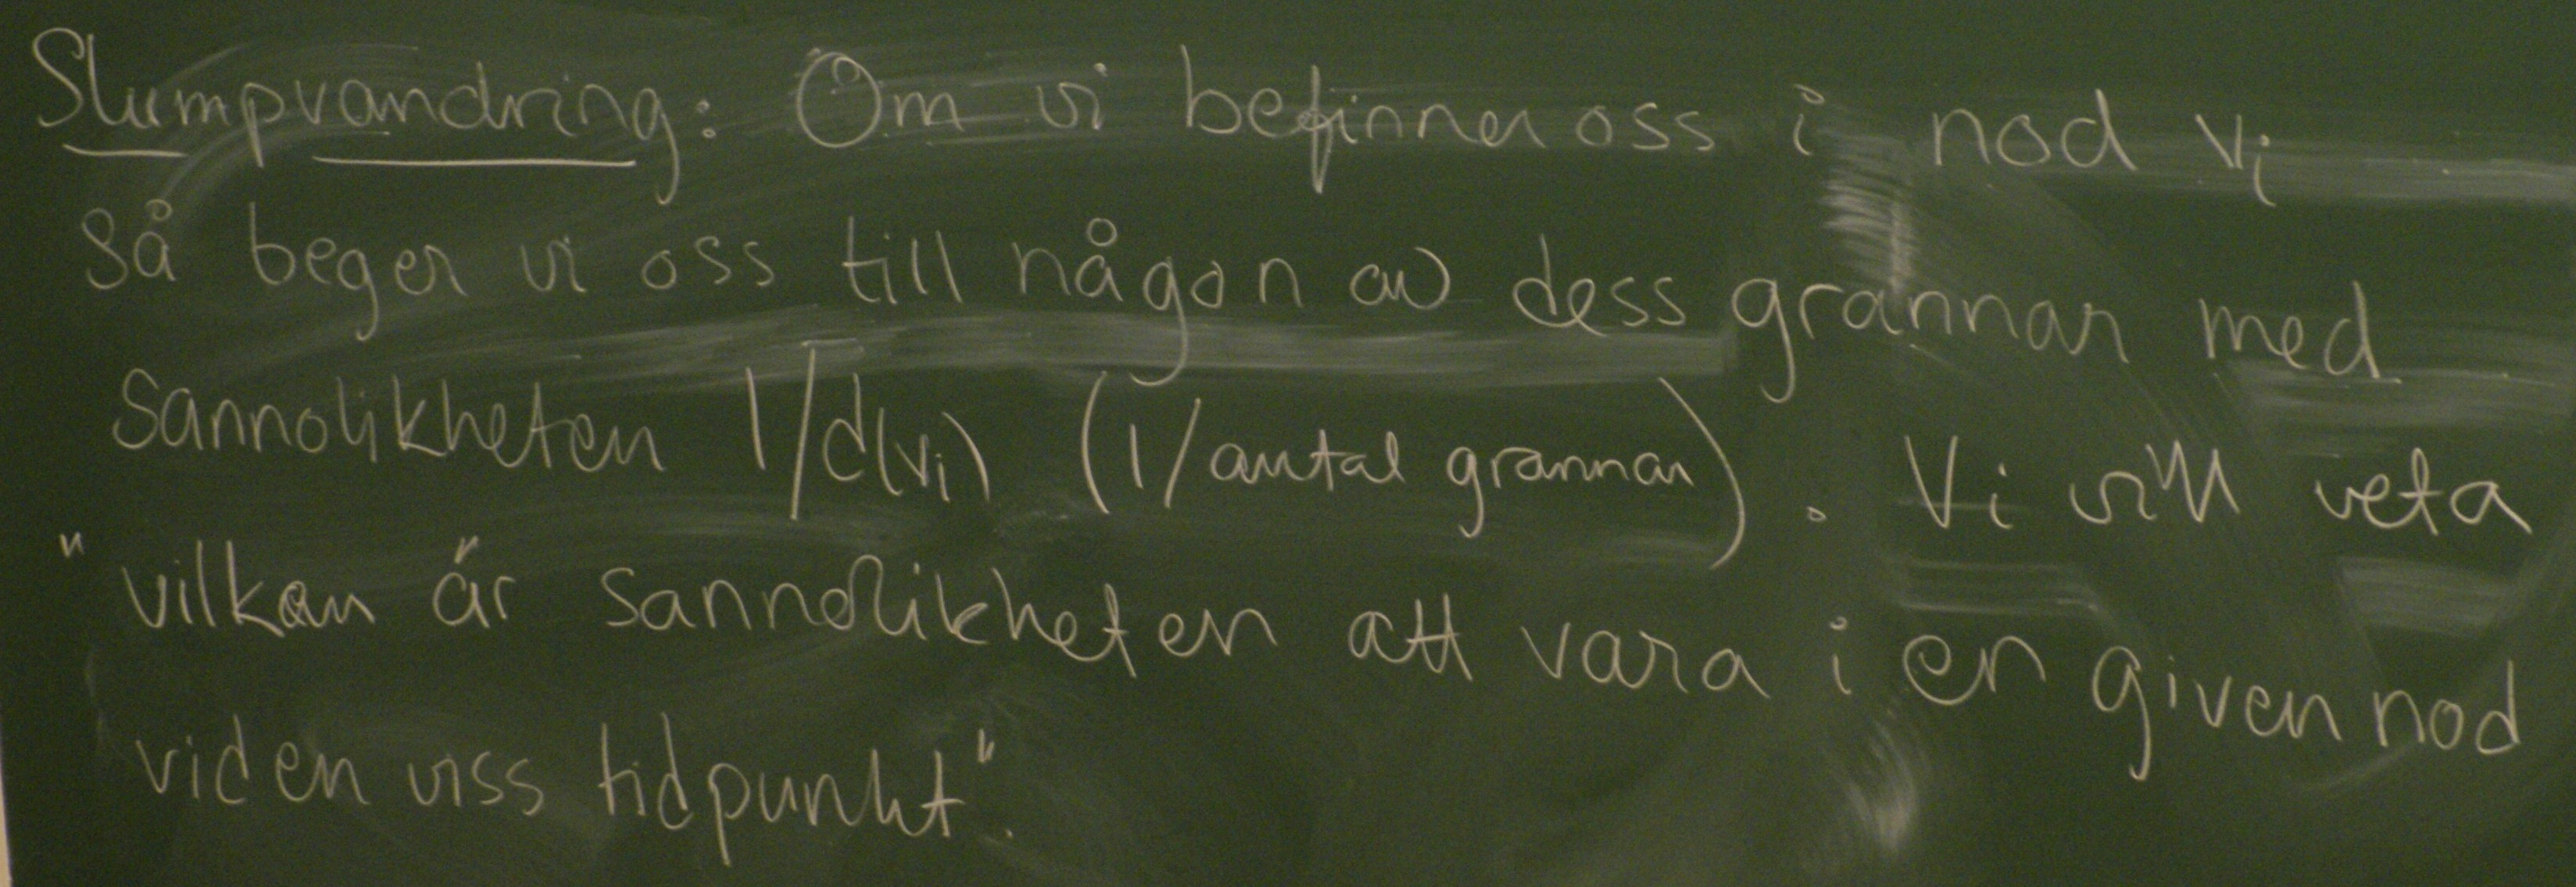 Slumpvandring: Om vi befinner oss i nod vi
så beger vi oss till någon av dess grannar med
sannolikheten 1/d(vi) (1/antal grannar). Vi vill veta
"vilken är sannolikheten att vara i en given nod
vid en viss tidpunkt".